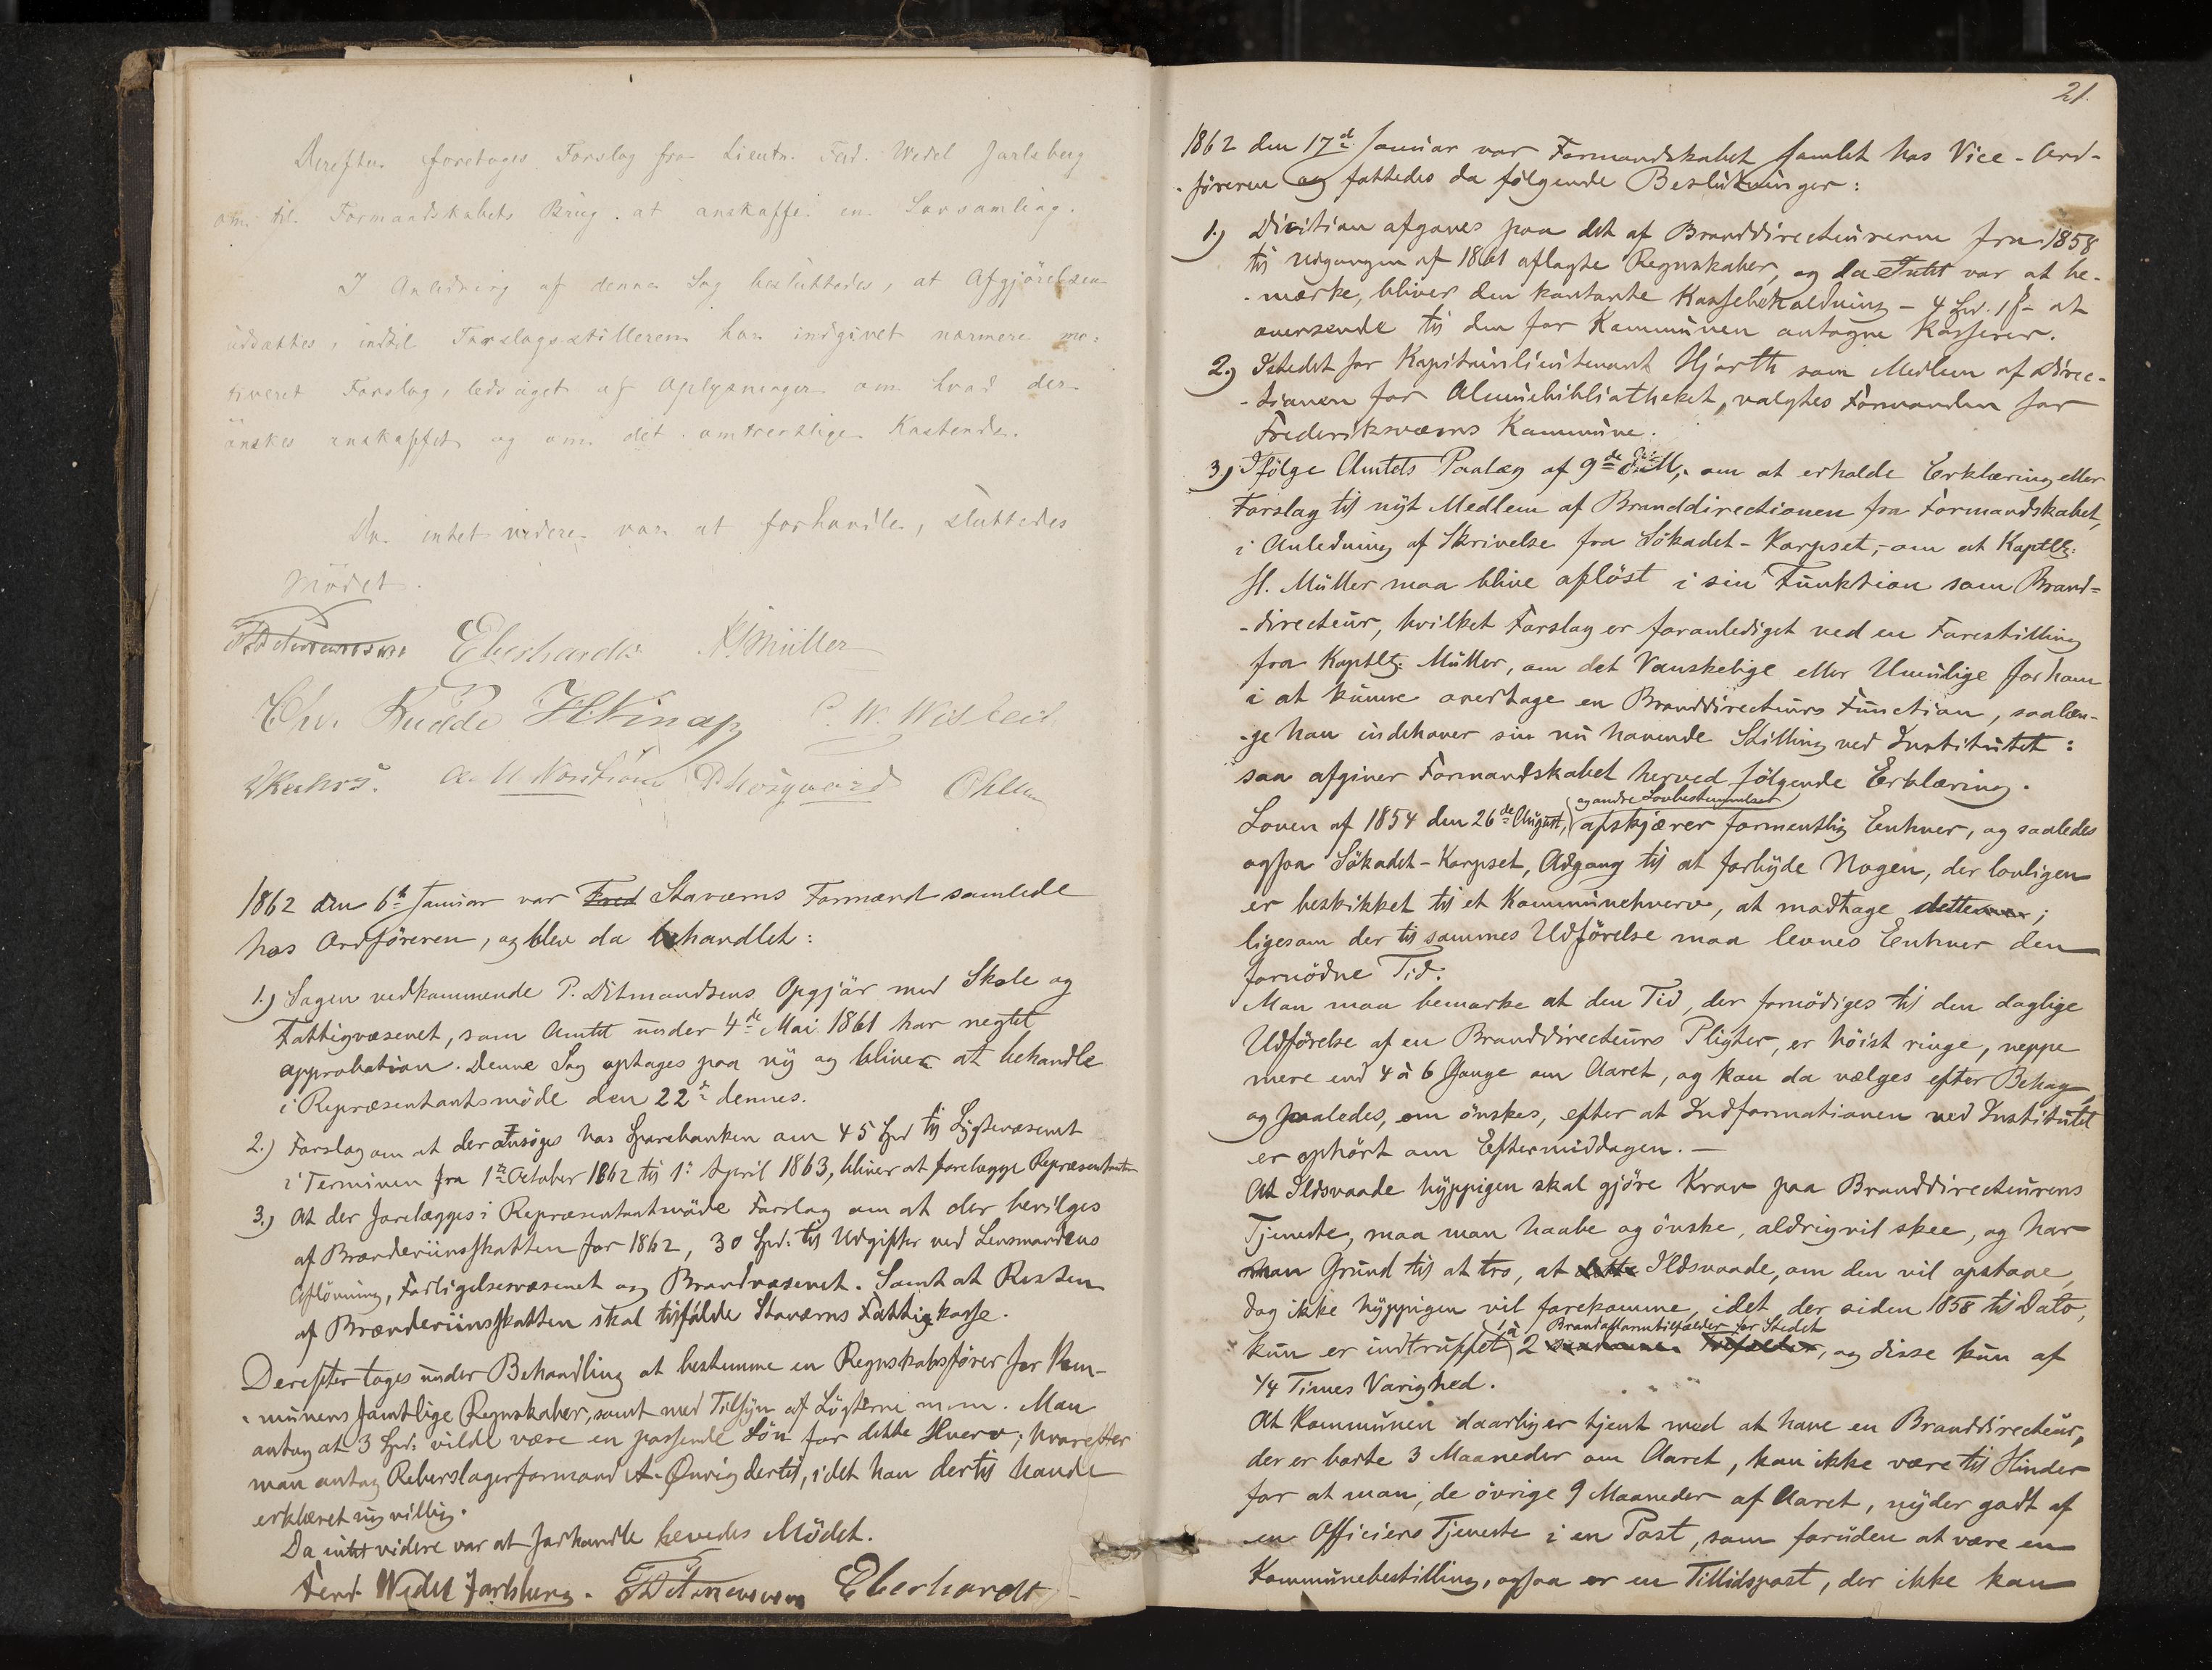 Derefter foretoges Forslag fra Lieutn. Ferd. Wedel Jarlsberg
om til Formandskabets Brug at anskaffe en Lovsamling.
I Anledning af denne Sag besluttedes, at Afgjörelsen
udsættes, indtil Forslagsstilleren har indgivet nærmere mo-
tiveret Forslag, ledsaget af Oplysninger om hvad der
önskes anskaffet og om det omtrentlige Kostende.
Da intet videre var at forhandle, sluttedes
Mödet.
Eberhardt Müller
Chr. Budde
1862 den 6te Januar var Fred Staværns Formænd samlede
hos Ordföreren, og blev da behandlet:
1.) Sagen vedkommende P. Ditmandsens Opgjör med Skole og
Fattigvæsenet, som Amtet under 4de Mai 1861 har negtet
approbation. Denne Sag optages paa ny og bliver at behandle
i Repræsentantsmöde den 22de dennes.
2.) Forslag om at der ansöges hos Sparebanken om 45 Spd til Lygtevæsenet
i Terminen fra 1ste October 1862 til 1ste April 1863, bliver at forelægge Repræsentant
3.) At der forelægges i Repræsentantmöde Forslag om at der bevilges
af Brænderiinsskatten for 1862, 30 Spd. til Udgifter ved Lensmandens
Aflönning, Forligelsesvæsenet og Brandvæsenet. Samt at Resten
af Brænderiinsskatten skal tilfalde Staværns Fattigkasse.
Derefter toges under Behandling at bestemme en Regnskabsförer for Kom-
munens samtlige Regnskaber, samt med Tilsyn af Lögterne m.m. Man
antog at 3 Spd. vilde være en passende Lön for dette Hverv; hvorefter
man antog Reberslagerformand A. Qvvig dertil, idet han dertil havde
erklæret sig villig.
Da intet videre var at forhandle hevedes Mödet.
Ferd. Wedel Jarlsberg. Eberhardt
21.
1862 den 17de Januar var Formandskabet samlet hos Vice-Ord-
föreren og fattedes da fölgende Beslutninger:
1.) Divition afgaves paa det af Branddirecteurerne fra 1858
til Udgangen af 1861 aflagte Regnskaber, og da Intet var at be-
mærke, bliver den kontante Kassebeholdning - 4 Spd. 1 ß - at
oversende til den for Kommunen antagne Kasserer.
2.) Istedet for Kapitainlieutenant Hjorth som Medlem af Direc-
tionen for Almuebibliotheket, valgtes Formanden for
Frederiksværns Kommune.
3.) Ifölge Amtets Paalæg af 9de om at erholde Erklæring eller
Forslag til nyt Medlem af Branddirectionen fra Formandskabet,
i Anledning af Skrivelse fra Sökadet-Korpset, om at Kaptlt:
H. Müller maa blive aflöst i sin Funktion som Brand-
directeur, hvilket Forslag er foranlediget ved en Forestilling
fra Kaptlt: Müller, om det Vanskelige eller Umulige for ham
i at kunne overtage en Branddirecteurs Function, saalæn-
ge han indehaver sin nu havende Stilling ved Institutet:
saa afgiver Formandskabet herved fölgende Erklæring.
og andre Lovbestemmelser
Loven af 1854 den 26de August, afskjærer formentlig Enhver, og saaledes
ogsaa Sökadet-Korpset, Adgang til at forbyde Nogen, der lovligen
er beskikket til et Kommunehverv, at modtage dette;
ligesom der til sammes Udförelse maa levnes Enhver den
fornödne Tid.
Man maa bemærke at den Tid, der fornödiges til den daglige
Udförelse af en Branddirecteurs Pligter, er höist ringe, neppe
mere end 4 à 6 Gange om Aaret, og kan da vælges efter Behag,
og saaledes, om önskes, efter at Indformationen ved Institutet
er ophört om Eftermiddagen. -
At Ildsvaade hyppigen skal gjöre Krav paa Branddirecteurens
Tjeneste, maa man haabe og önske, aldrig vil skee, og har
man Grund til at tro, at dette Ildsvaade, om den vil opstaae,
dog ikke hyppigen vil forekomme, idet der siden 1858 til Dato,
1 à Brandallarmtilfælder for Stedet
kun er indtruffet 2 Tilfælder, og disse kun af
1/4 Times Varighed.
At Kommunen daarlig er tjent med at have en Branddirecteur,
der er borte 3 Maaneder om Aaret, kan ikke være til Hinder
for at man, de övrige 9 Maaneder af Aaret, nyder godt af
en Officiers Tjeneste i en Post, som foruden at være en
Kommunebestilling, ogsaa er en Tillidspost, der ikke kan